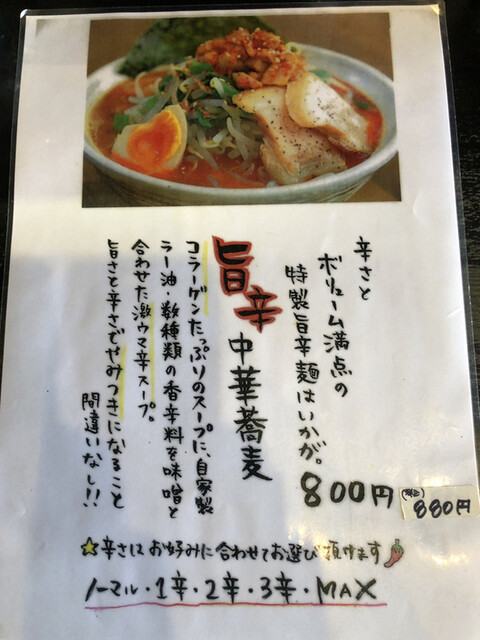 辛さと
ボリューム満点の
特製旨辛麺はいかが。
800円
(税込)
880円
旨辛
中華蕎麦
コラーゲンたっぷりのスープに、自家製
ラー油・数種類の香辛料を味噌と
合わせた激ウマ辛スープ。
旨さと辛さでやみつきになること
間違いなし!!
☆辛さはお好みに合わせてお選び頂けます
ノーマル・1辛・2辛・3辛・MAX